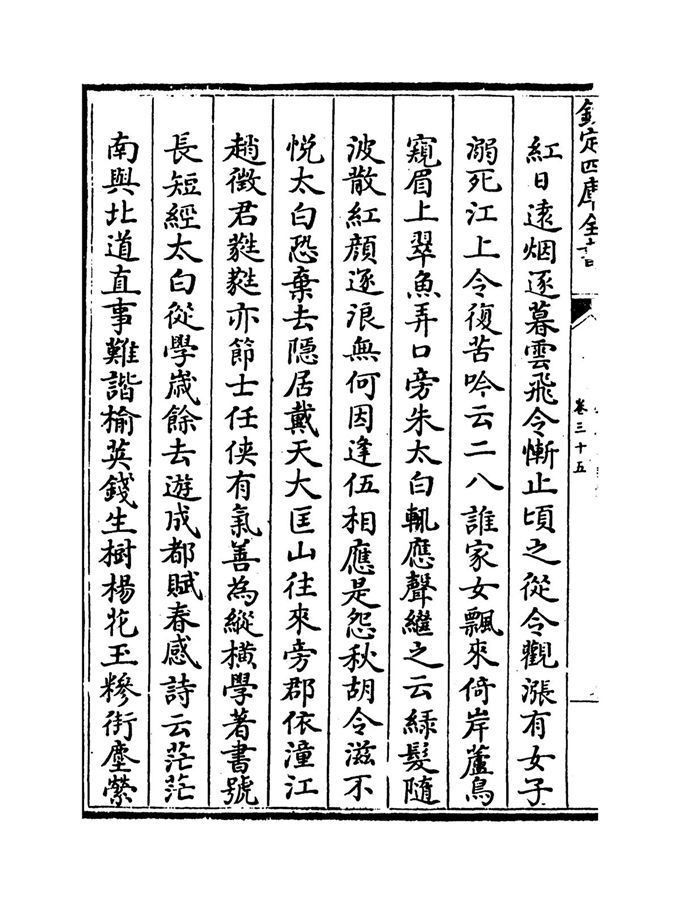 欽定四庫全書
卷三十五
紅日遠烟逐暮雲飛令慚止頃之從令觀漲有女子
溺死江上令復苦吟云二八誰家女飄來倚岸蘆鳥
窺眉上翠魚弄口旁朱太白輒應聲繼之云緑髮隨
波散紅顔逐浪無何因逢伍相應是怨秋胡令滋不
悦太白恐棄去隱居戴天大匡山往來旁郡依潼江
趙徵君蕤蕤亦節士任俠有氣善為縱横學著書號
長短經太白從學歳餘去遊成都賦春感詩云茫茫
南與北道直事難諧榆莢錢生樹楊花玉糝街塵縈